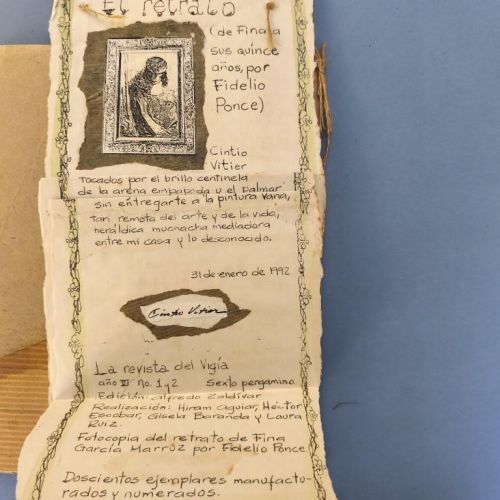 El retrato
(de Fina a
sus quince
años, por
Fidelio
Ponce)
Cintio
Vitier
Tocados por el brillo centinela
de la arena empapada u el palmar
sin entregarte a la pintura vana,
tan remota del arte y de la vida,
heráldica muchacha mediadora
entre mi casa y lo desconocido.
31 de enero de 1992
Cintio Vitier
La revista del Vigía
año III No. 1 y 2 Sexto pergamino
Edición: Alfredo Zaldívar
Realización: Hiram Aguiar, Héctor
Escobar, Gisela Baranda y Laura
Ruiz.
Fotocopia del retrato de Fina
García Marrúz por Fidelio Ponce
Doscientos ejemplares manufactu-
rados y numerados.